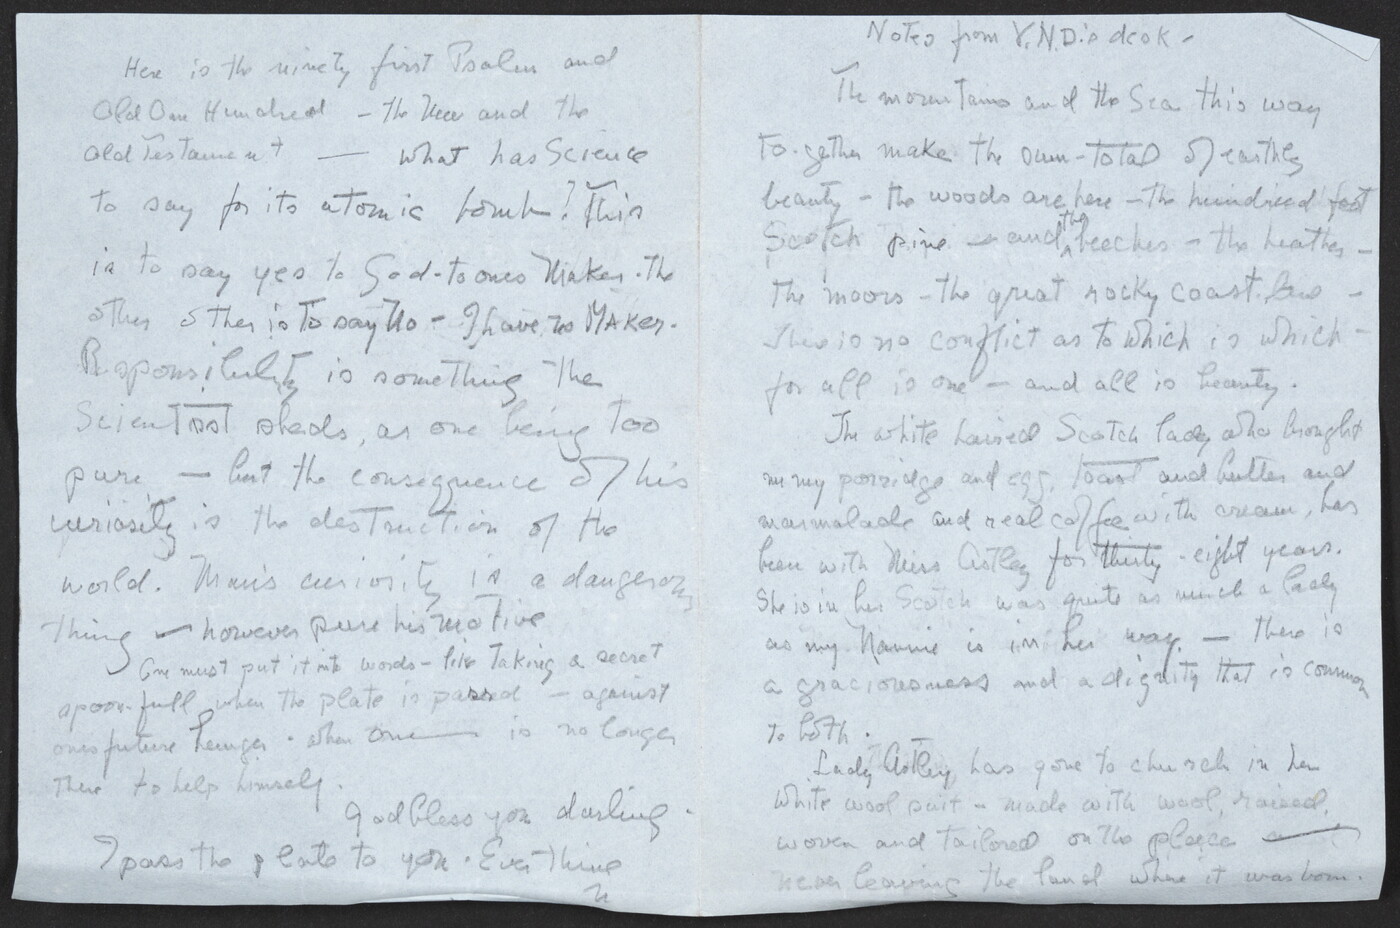 Here is the ninety first Psalm and
Old One Hundred - the New and the
Old Testament — what has Science
to say for its atomic bomb? This
is to say yes to God - to ones Maker. The
other other is To say No - I have no MAKER.
Responsibility is something the
Scientist sheds, as one being Too
pure — but the consequence of his
curiosity is the destruction of the
world. Man's curiosity is a dangerous
thing — however pure his motive
One must put it into words - like Taking a secret
spoon-full when the plate is passed - against
ones future hunger. when one — is no longer
There to help himself.
God bless you darling.
I pass the plate to you. Ever Thine
N
Notes from V.N.D.'s desk -
The mountains and the Sea this way
to-gether make the sum-total of earthly
beauty - the woods are here - the hundred foot
Scotch pine - and the beeches - the heather -
The moors - the great rocky coast. -
There is no conflict as to which is which -
for all is one - and all is beauty.
The white haired Scotch lady who brought
me my porridge and egg, toast and butter and
marmalade and real coffee with cream, has
been with Miss Astley for thirty-eight years.
She is in her Scotch way quite as much a lady
as my Nannie is in her way — there is
a graciousness and a dignity that is common
to both.
Lady Astley has gone to church in her
white wool suit - made with wool, raised,
woven and tailored on the place —
never leaving the land where it was born.